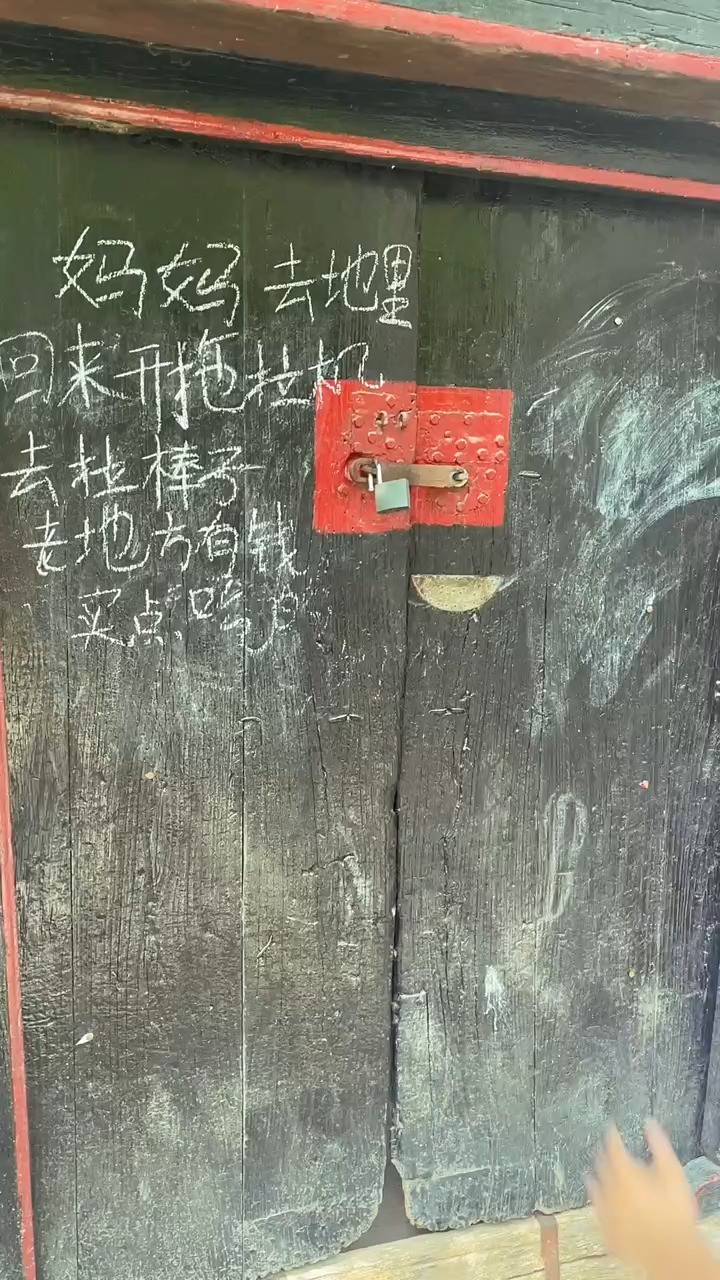 妈妈去地里
回来开拖拉机
去拉棒子
老地方有钱
买点吃